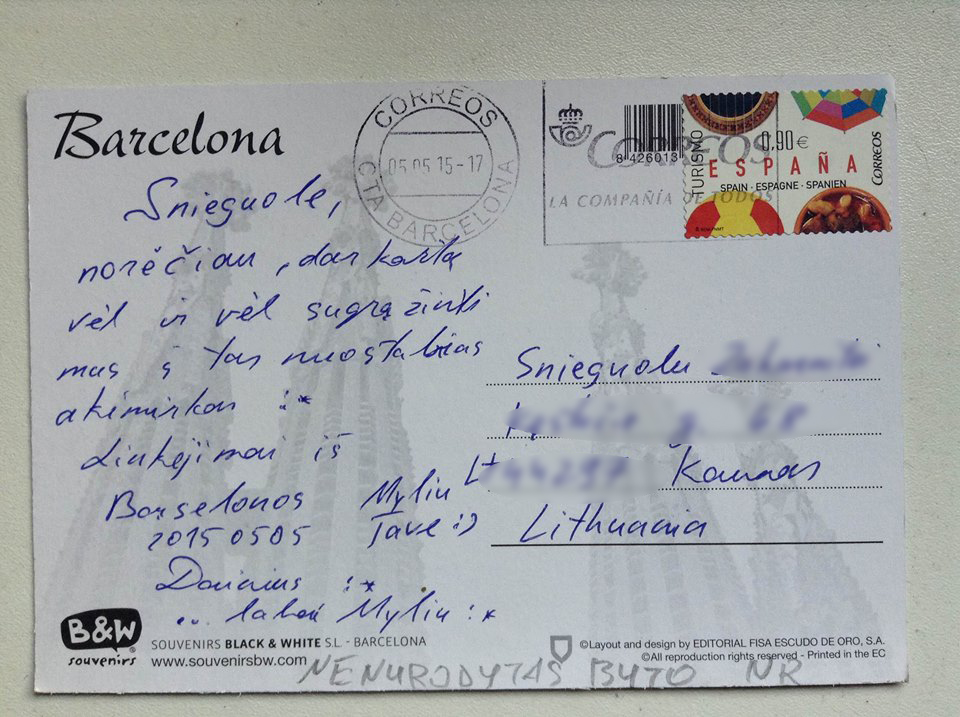 Barcelona
CORREOS
05.05 15-17
CTA BARCELONA
8 426013
CORREOS
LA COMPAÑÍA DE TODOS
TURISMO
0,90€
ESPAÑA
CORREOS
SPAIN · ESPAGNE · SPANIEN
Snieguole,
norėčiau, dar kartą
vėl ir vėl sugrąžinti
mus į tas nuostabias
akimirkas :*
Linkėjimai iš
Barselonos
20150505
Myliu
Tave :)
Dainius :*
... labai Myliu :*
Snieguolu
g. 68
Lt
Kaunas
Lithuania
B&W
souvenirs
SOUVENIRS BLACK & WHITE S.L. - BARCELONA
www.souvenirsbw.com
©Layout and design by EDITORIAL FISA ESCUDO DE ORO, S.A.
©All reproduction rights reserved - Printed in the EC
NENURODYTAS BUTO NR